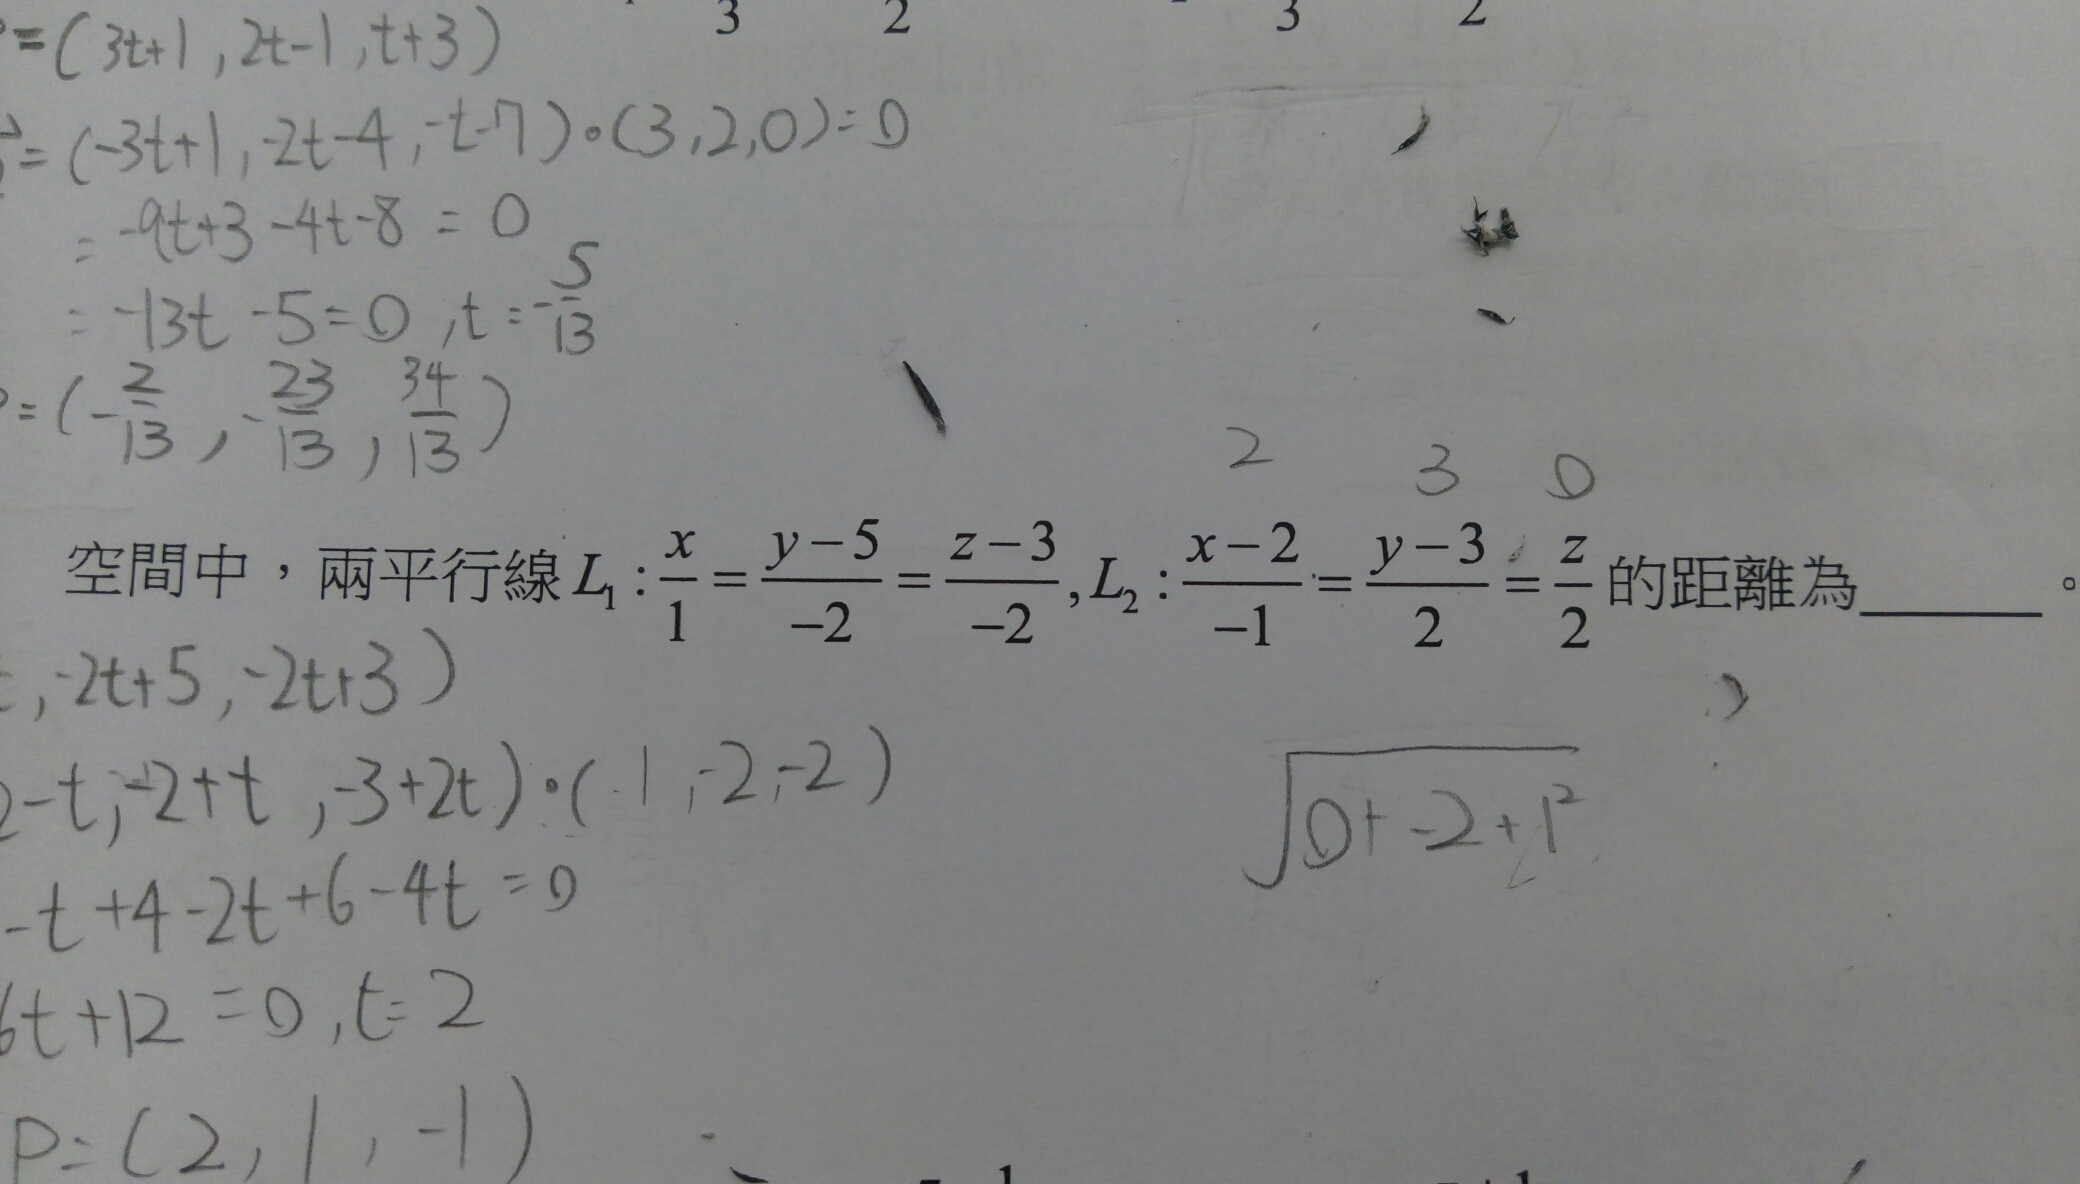 3 2 3 2
=(3t+1, 2t-1, t+3)
=(-3t+1, -2t-4, -t-7)•(3,2,0)=0
= -9t+3-4t-8 = 0
= -13t-5=0, t=-5/13
=(-2/13, -23/13, 34/13)
2 3 0
空間中，兩平行線L₁: x/1 = (y-5)/-2 = (z-3)/-2, L₂: (x-2)/-1 = (y-3)/2 = z/2 的距離為______。
, -2t+5, -2t+3)
2-t, -2+t, -3+2t)•(1,-2,-2)
√(0+-2+1²)
-t+4-2t+6-4t=0
6t+12=0, t=2
P=(2, 1, -1)